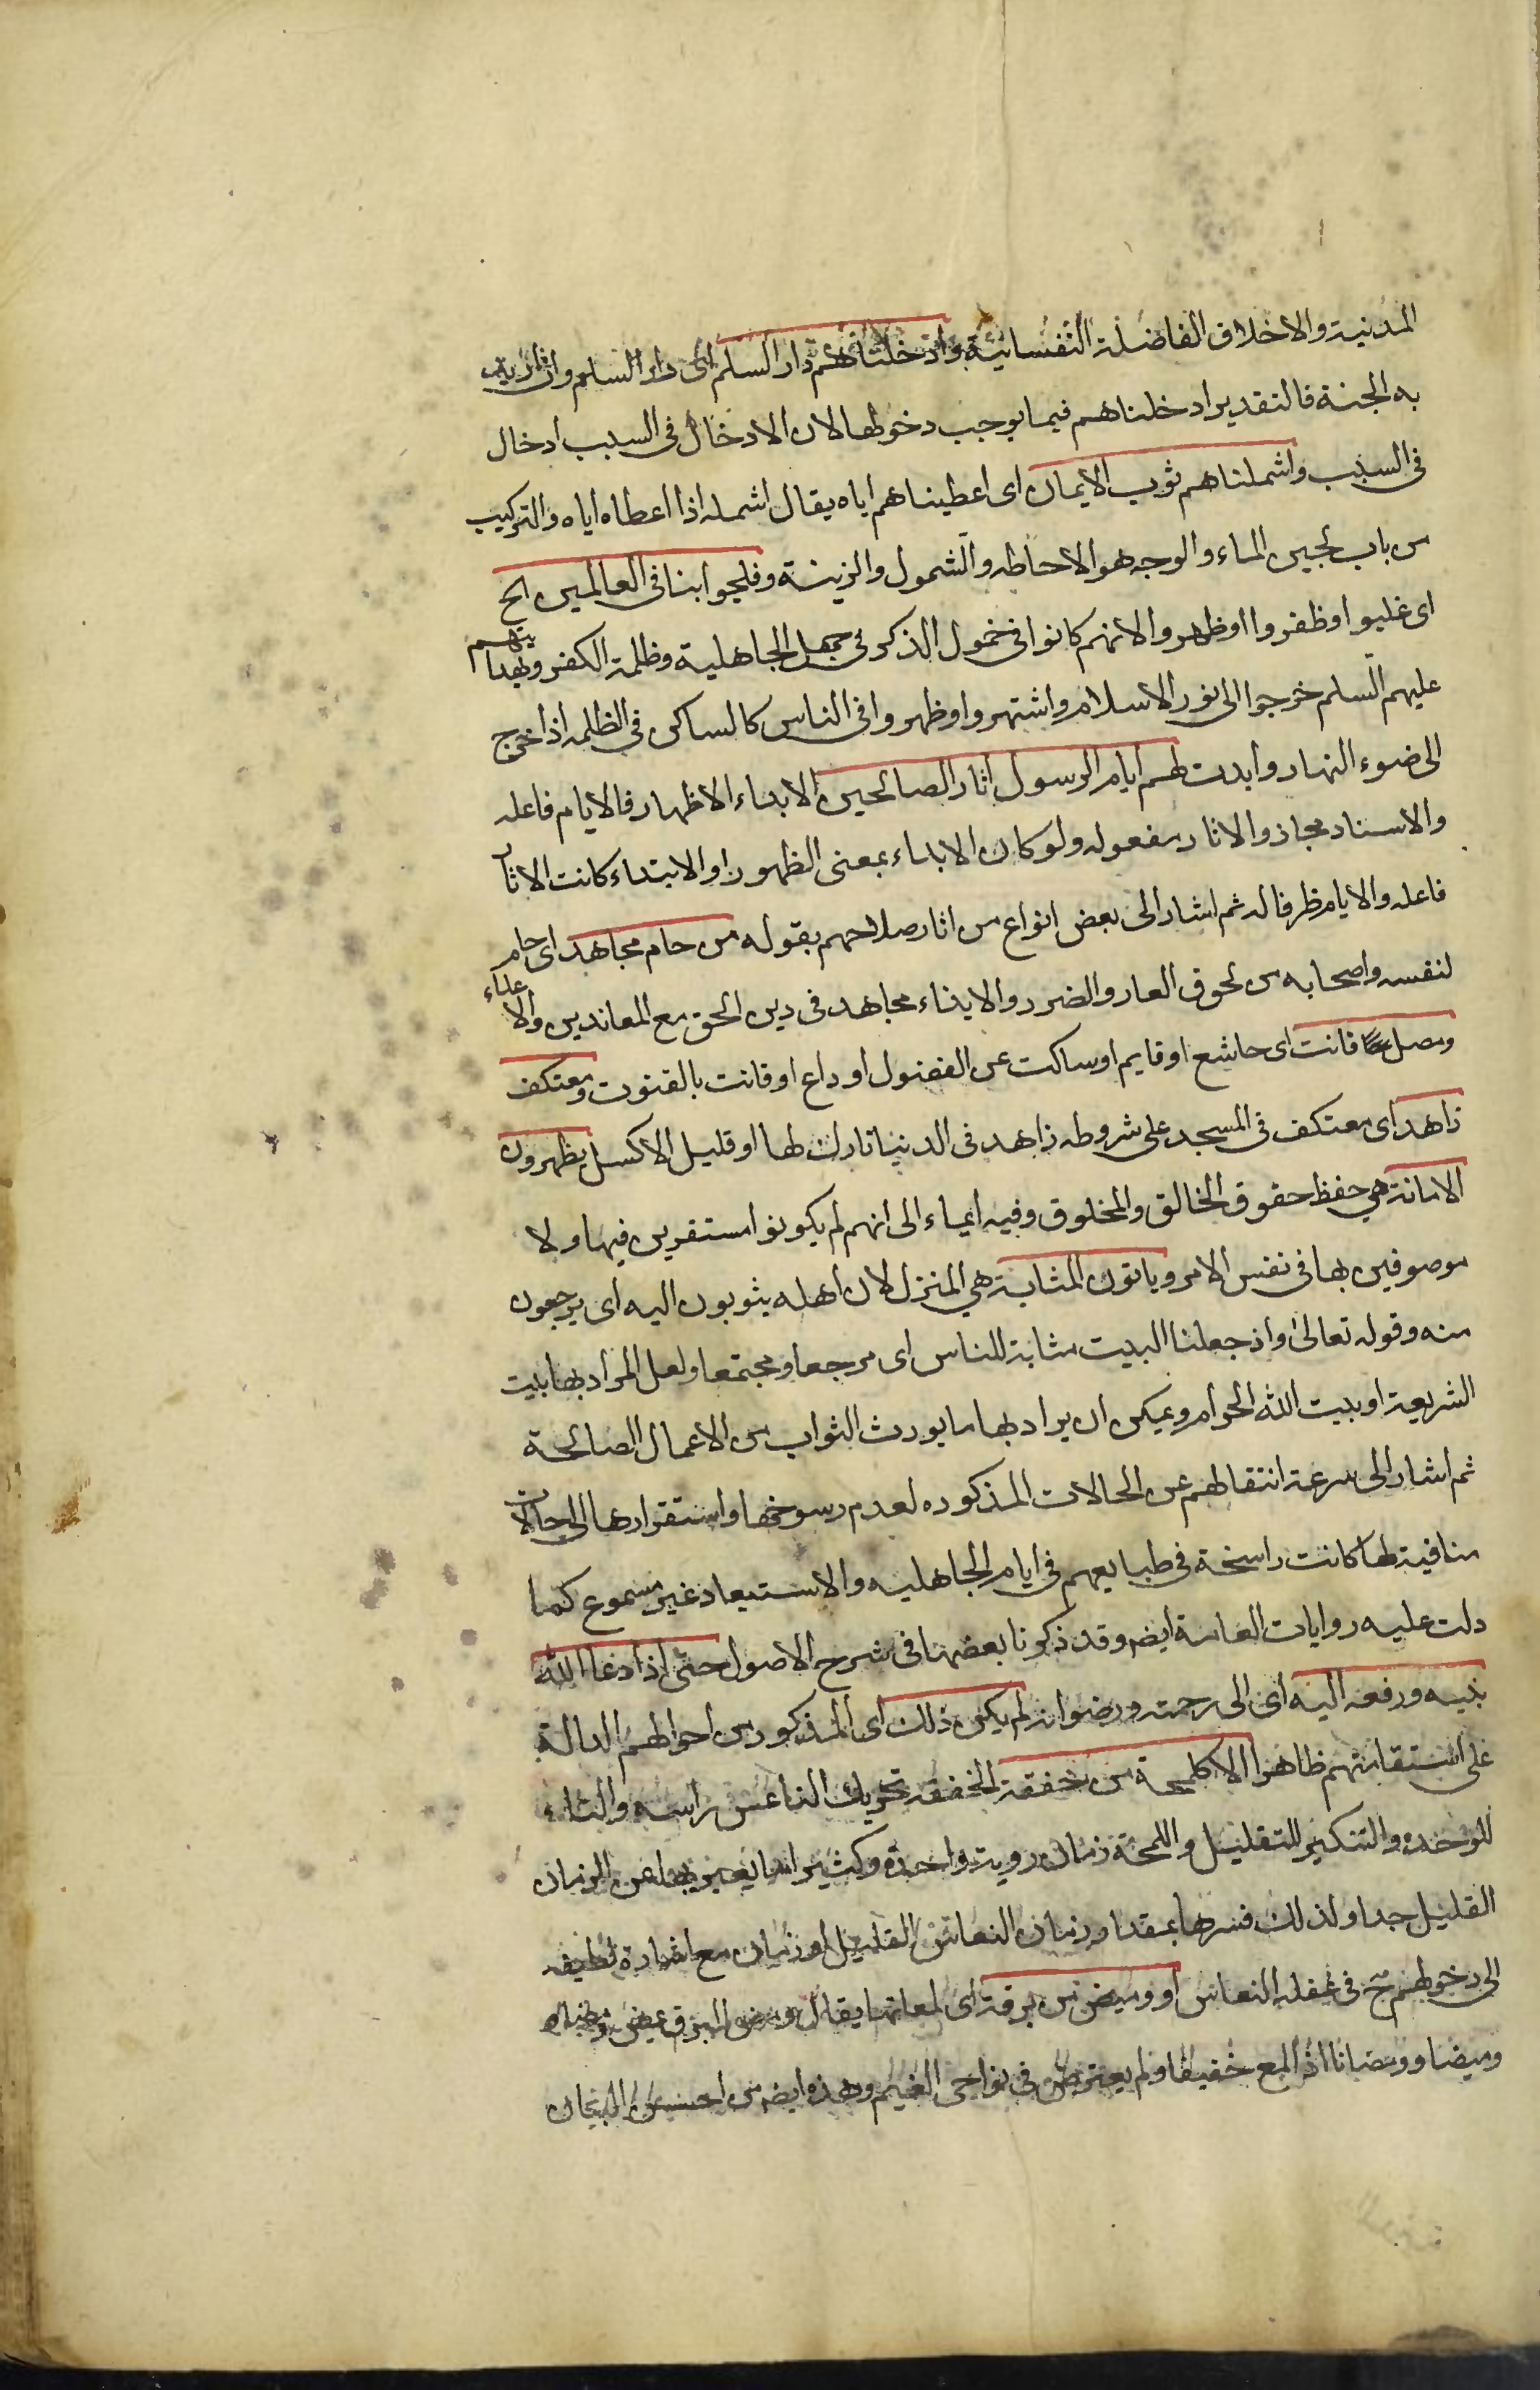 المدنية والاخلاق الفاضلة النفسانية وادخلناهم دار السلم اى دار السلم وان اريد
به الجنة فالتقدير ادخلناهم فيما يوجب دخولها لان الادخال فى السبب ادخال
فى السبب واشملناهم ثوب الايمان اى اعطيناهم اياه يقال اشمله اذا اعطاه اياه والتركيب
من باب لجين الماء والوجه هو الاحاطه والشمول والزينة وفلجوا بنا فى العالمين الخ
اى غلبوا وظفروا اوظهروا لانهم كانوا فى خمول الذكر فى جهل الجاهلية وظلمة الكفر وبهدايتهم
عليهم السلم خرجوا الى نور الاسلام واشتهروا وظهروا فى الناس كالساكن فى الظلمه اذا خرج
الى ضوء النهار وابدت لهم ايام الرسول اثار الصالحين الابداء الاظهار فالايام فاعله
والاسناد مجاز والاثار مفعوله ولو كان الابداء بمعنى الظهور او الابتداء كانت الاثار
فاعله والايام ظرفا له ثم اشار الى بعض انواع من اثار صلاحهم بقوله من حام مجاهد اى حام
لنفسه واصحابه من لحوق العار والضرر والايذاء مجاهد فى دين الحق مع المعاندين والاعداء
ومصل قانت اى خاشع او قايم او ساكت عن الفضول او داع او قانت بالقنوت ومعتكف
زاهد اى معتكف فى المسجد على شروطه زاهد فى الدنيا تارك لها او قليل الاكل يظهرون
الامانة هي حفظ حقوق الخالق والمخلوق وفيه ايماء الى انهم لم يكونوا مستقرين فيها ولا
موصوفين بها فى نفس الامر وياتون المثابة هي المنزل لان اهله يثوبون اليه اى يرجعون
منه وقوله تعالى واذ جعلنا البيت مثابة للناس اى مرجعا ومجتمعا ولعل المراد بها بيت
الشريعة او بيت الله الحرام ويمكن ان يراد بها ما يورث الثواب من الاعمال الصالحة
ثم اشار الى سرعة انتقالهم عن الحالات المذكوره لعدم رسوخها واستقرارها الى حالات
منافية لها كانت راسخة فى طبايعهم فى ايام الجاهليه والاستبعاد غير مسموع كما
دلت عليه روايات العامة ايضه وقد ذكرنا بعضها فى شرح الاصول حتى اذا دعا الله
نبيه ورفعه اليه اى الى رحمته ورضوانه لم يكن ذلك اى المذكور من احوالهم الدالة
على استقامتهم ظاهرا الا كلمحة من خفقة الخفقه تحريك الناعس راسه والتاء
للوحده والتنكير للتقليل واللمحة زمان روية واحدة وكثيرا ما يعبر بها عن الزمان
القليل جدا ولذلك فسرها بمقدار زمان النعاس القليل او زمان مع اشارة لطيفه
الى دخولهم ح فى غفلة النعاس او وميض من برقة اى لمعانها يقال ومض البرق يمض ومضا
وميضا وومضانا اذا لمع خفيفا ولم يعترض فى نواحى الغيم وهذه ايضه من احسن